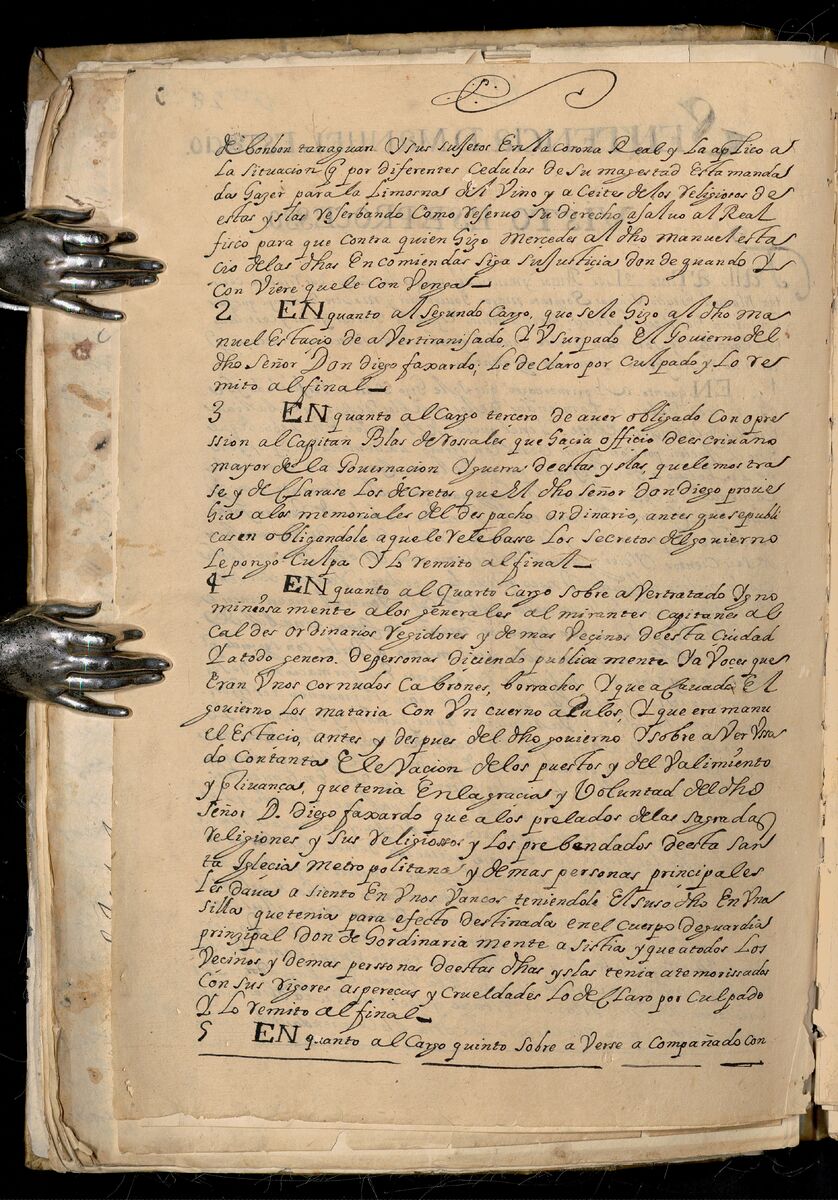 de bonbon tanaguan Y sus sujetos En la Corona Real y La aplico a
La situacion q por diferentes Cedulas de su magestad Esta manda
das Gazer para la Limosna del Vino y aCeite de los religiosos de
estas yslas reserbando Como reservo su derecho a saluo al Real
fisco para que contra quien Gizo Mercedes al dho manuel esta
cio de las dhas Encomiendas siga su Justicia donde quando Y
Con Viere que le Con Venga
2 EN quanto al segundo Cargo, que se le Gizo al dho ma
nuel Estacio de aVer tiranisado, Y Vsurpado El Gouierno del
dho Señor Don diego faxardo; Le de Claro por Culpado y Lo re
mito al final
3 EN quanto al Cargo tercero de auer obligado Con opre
ssion al Capitan Blas de rossales que Gaçia officio de escriuano
mayor de la Gouernacion Y guerra de estas yslas, que le mostra
se y de Clarase Los decretos que El dho señor don diego prouei
Gia a los memoriales del despacho ordinario, antes que se publi
casen obligandole a que le rebelasse Los Secretos del gouierno
Le pongo Culpa Y Lo remito al final
4 EN quanto al Quarto Cargo sobre aVer tratado Ygno
miniosa mente a los generales almirantes Capitanes al
Caldes ordinarios regidores y demas Vecinos de esta Ciudad
Y a todo genero de personas diciendo publica mente Y a Voces que
Eran Vnos cornudos Cabrones, borrachos Y que acauado El
gouierno Los mataria Con Vn cuerno a Palos, Y que era manu
el Estacio, antes y despues del dho gouierno Y sobre aVer Vssa
do Con tanta EleVacion de los puestos y del Valimiento
y priuança, que tenia En la gracia y Voluntad del dho
Señor D. Diego faxardo que a los prelados de las sagradas
religiones y sus religiossos y Los prebendados de esta San
ta Iglecia Metropolitana y demas personas principales
Les daua asiento En Vnos Vancos teniendole El suso dho En Vna
silla que tenia para efecto destinada en el Cuerpo de guardia
prinzipal donde Gordinaria mente asistia y que a todos Los
Vecinos y demas perssonas de estas dhas yslas tenia atemorissados
Con sus rigores asperecas y Crueldades Lo de Claro por Culpado
Y Lo remito al final
5 EN quanto al Cargo quinto sobre aVerse aCompañado con